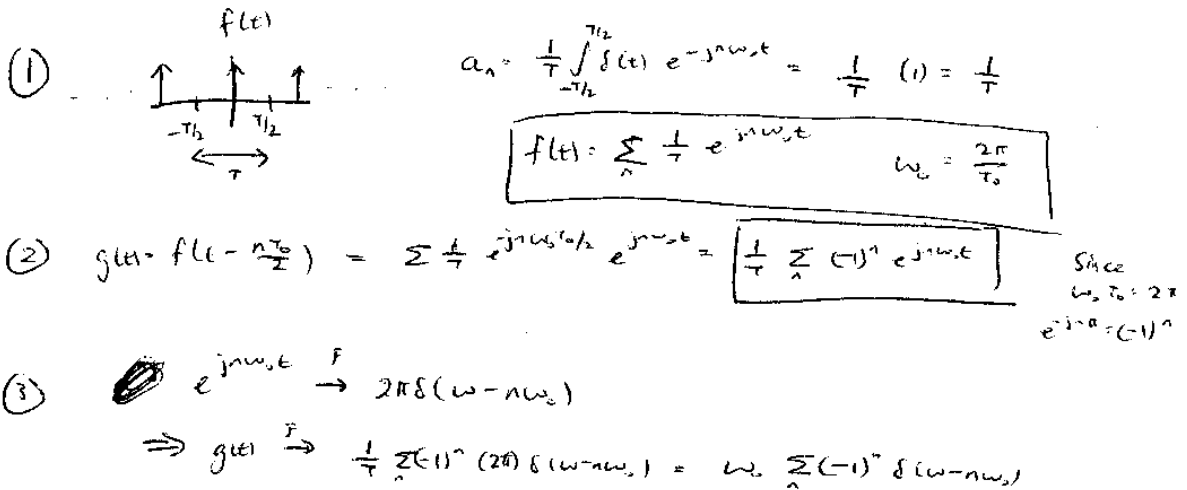 f(t)
① . . . . -T/2 T/2 . . .
T
aₙ = 1/T ∫_{-T/2}^{T/2} δ(t) e^{-jnω₀t} = 1/T (1) = 1/T
f(t) = Σₙ 1/T e^{jnω₀t} ω₀ = 2π/T₀
② g(t) = f(t - nT₀/2) = Σ 1/T e^{-jnω₀T₀/2} e^{jnω₀t} = 1/T Σₙ (-1)ⁿ e^{jnω₀t}
Since
ω₀T₀ = 2π
e^{-jnπ} = (-1)ⁿ
③ e^{jnω₀t} →^F 2πδ(ω-nω₀)
⇒ g(t) →^F 1/T Σₙ(-1)ⁿ (2π) δ(ω-nω₀) = ω₀ Σₙ(-1)ⁿ δ(ω-nω₀)